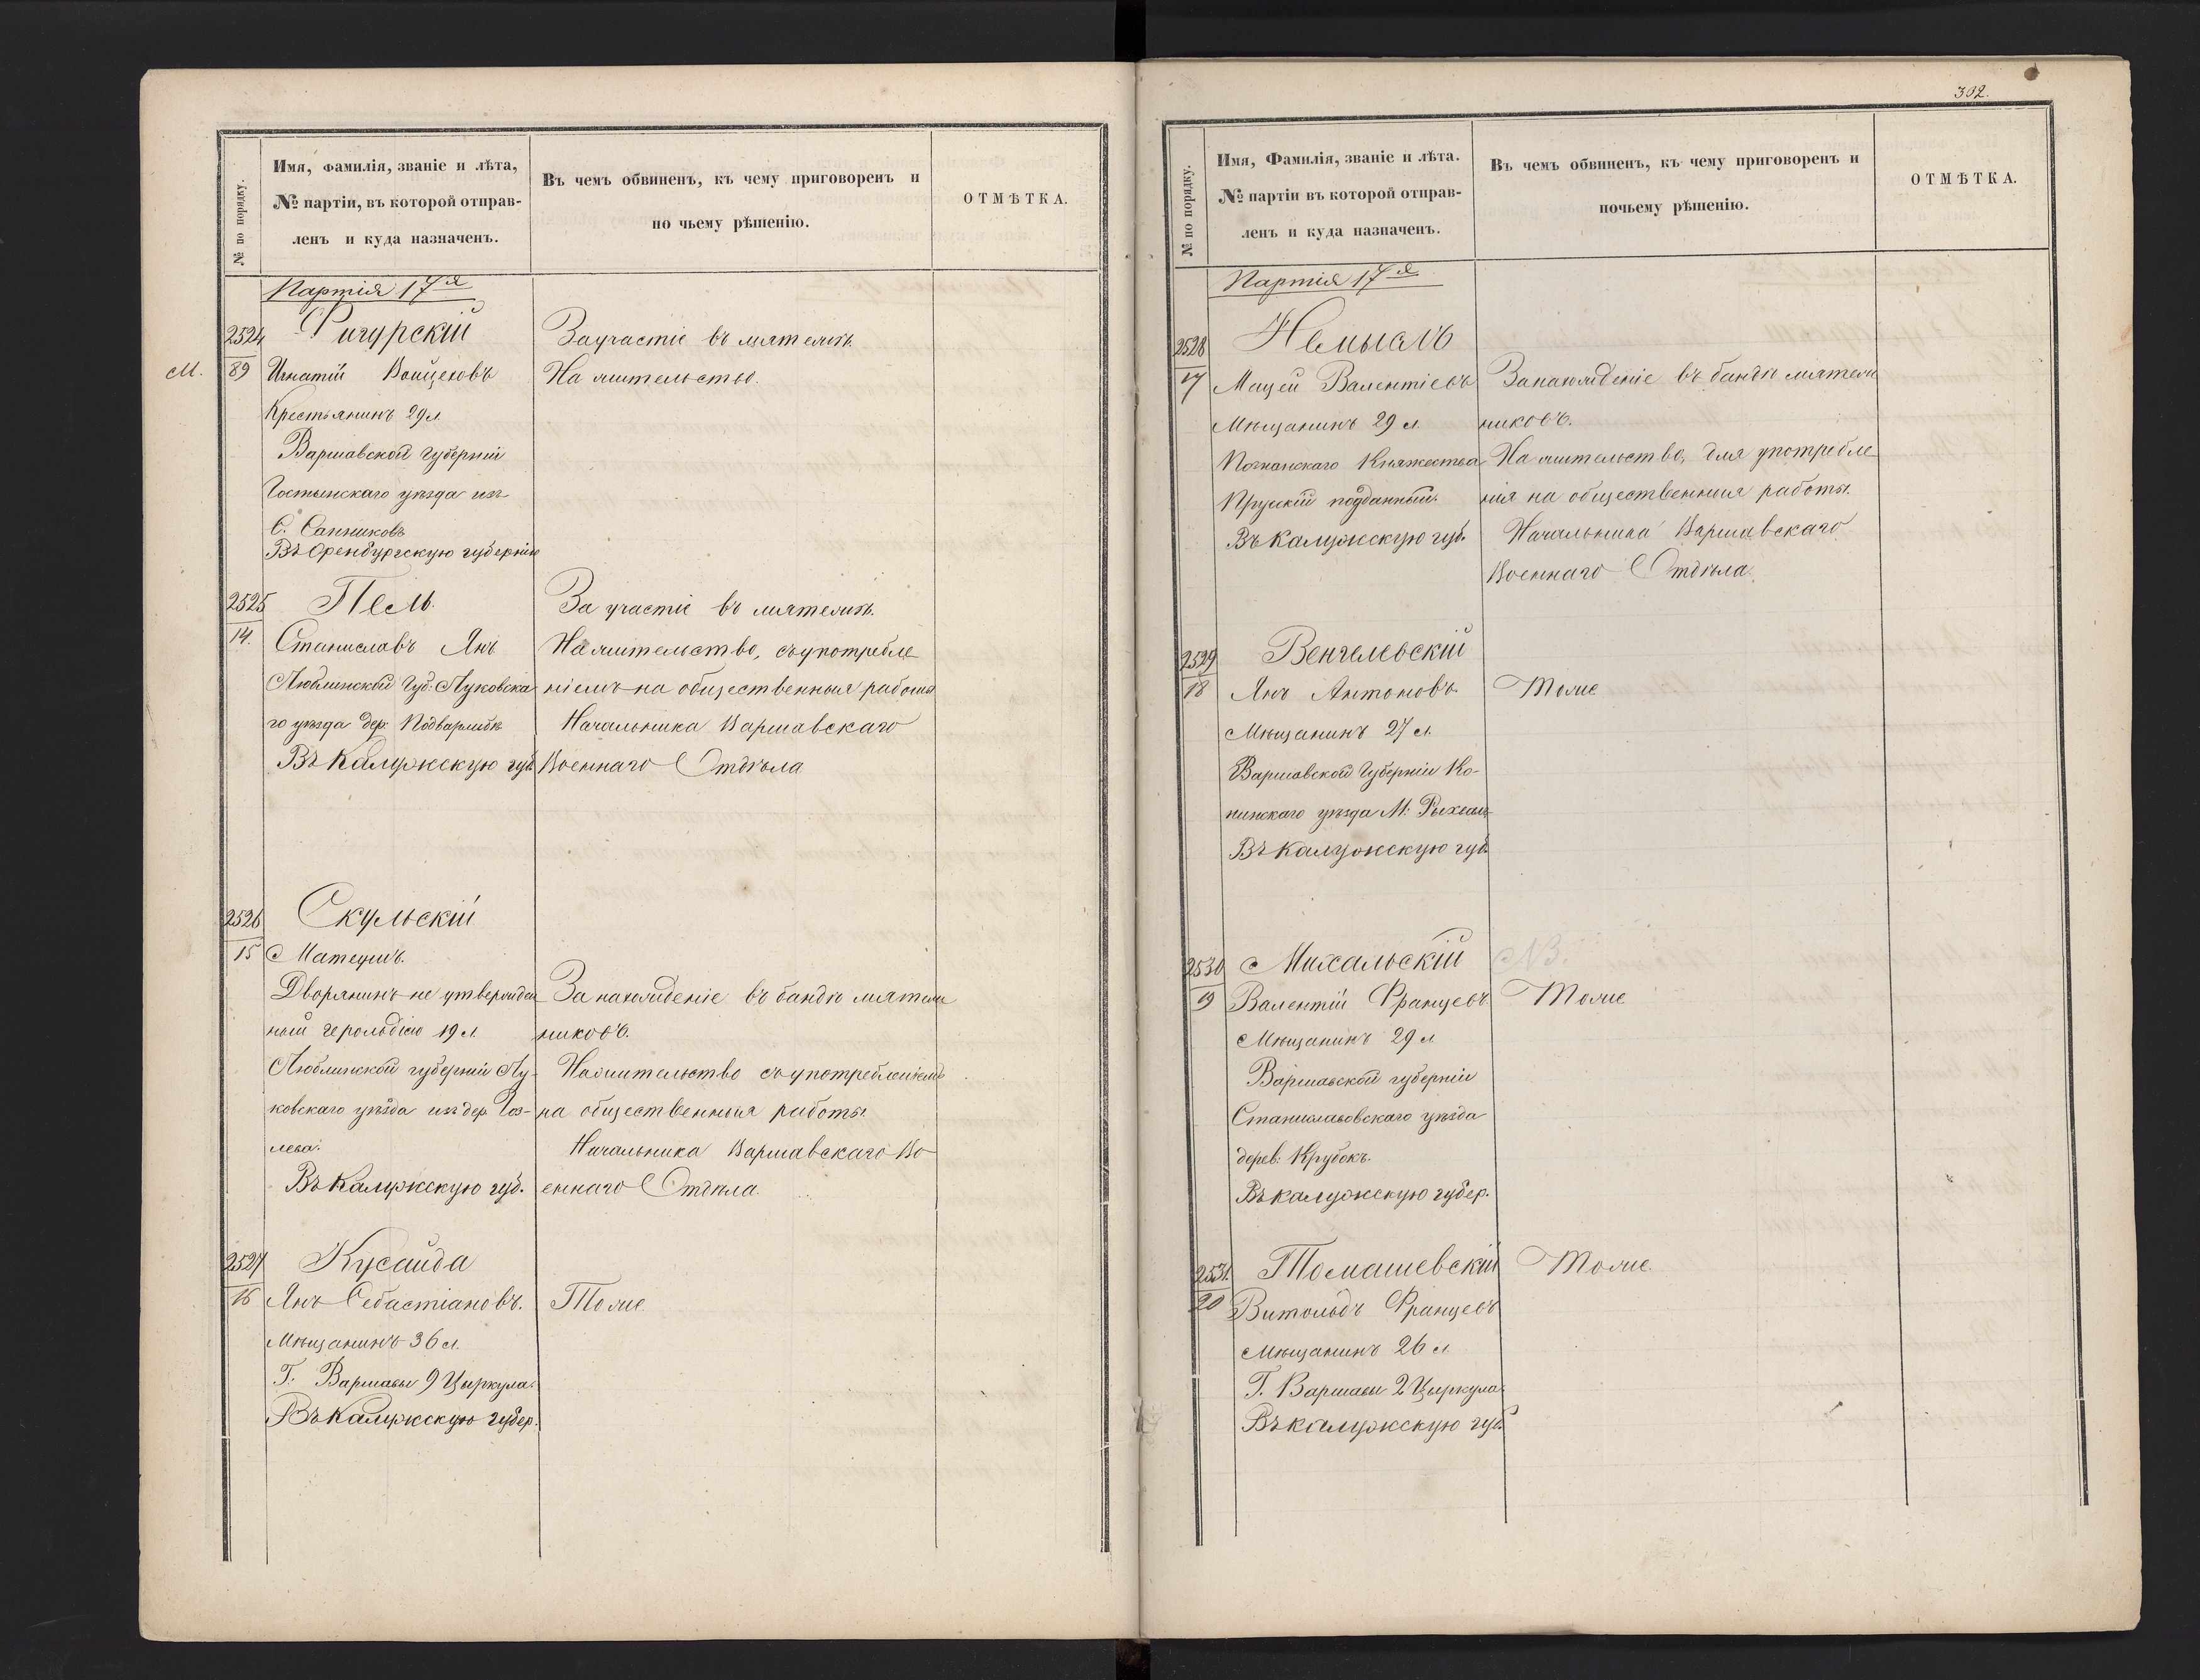 № по порядку.
Имя, фамилія, званіе и лѣта,
№ партіи, въ которой отправ-
ленъ и куда назначенъ.
Въ чемъ обвиненъ, къ чему приговоренъ и
по чьему рѣшенію.
ОТМѢТКА.
Партія 17я
2524
Фигурскій
За участіе въ мятежѣ.
М.
89
Игнатій Войцеховъ
На жительство.
Крестьянинъ 29 л.
Варшавской губерніи
Гостынскаго уѣзда изъ
С. Санниковъ
Въ Оренбургскую губернію
2525
Пель
За участіе въ мятежѣ.
14.
Станиславъ Янъ
На жительство, съ употребле
Люблинской Губ: Луковска
ніемъ на общественныя работы
го уѣзда дер:
Начальника Варшавскаго
Въ Калужскую губ.
Военнаго Отдѣла
2526
Скульскій
15
Матеушъ.
Дворянинъ не утвержден
За нахожденіе въ бандѣ мятеж
ный герольдіею 19 л.
никовъ.
Люблинской губерніи Лу-
На жительство съ употребленіемъ
ковскаго уѣзда изъ дер. Гоз-
на общественныя работы.
лева.
Начальника Варшавскаго Во
Въ Калужскую губ.
еннаго Отдѣла.
2527
Кусайда
16
Янъ Себастіановъ.
Тоже
Мѣщанинъ 36 л.
Г. Варшавы 9 Цыркула.
Въ Калужскую губер.
302.
№ по порядку.
Имя, Фамилія, званіе и лѣта.
№ партіи въ которой отправ-
ленъ и куда назначенъ.
Въ чемъ обвиненъ, къ чему приговоренъ и
почьему рѣшенію.
ОТМѢТКА.
Партія 17я
2528
Немыслъ
17
Мацей Валентіевъ
За нахожденіе въ бандѣ мятеж
Мѣщанинъ 29 л.
никовъ.
Познанскаго Княжества
На жительство, для употребле
Прускій подданный.
нія на общественныя работы.
Въ Калужскую губ.
Начальника Варшавскаго
Военнаго Отдѣла.
2529
Венгелевскій
18
Янъ Антоновъ.
Тоже
Мѣщанинъ 27 л.
Варшавской Губерніи Ко-
нинскаго уѣзда М: Рыхвалъ
Въ Калужскую губ.
2530
Михальскій
NB.
19
Валентій Францевъ.
Тоже
Мѣщанинъ 29 л
Варшавской губерніи
Станиславовскаго уѣзда
дерев: Крубокъ.
Въ калужскую губер.
2531.
Томашевскій
Тоже.
20
Витольдъ Францевъ
Мѣщанинъ 26 л
Г. Варшавы 2 Цыркула.
Въ калужскую губ.